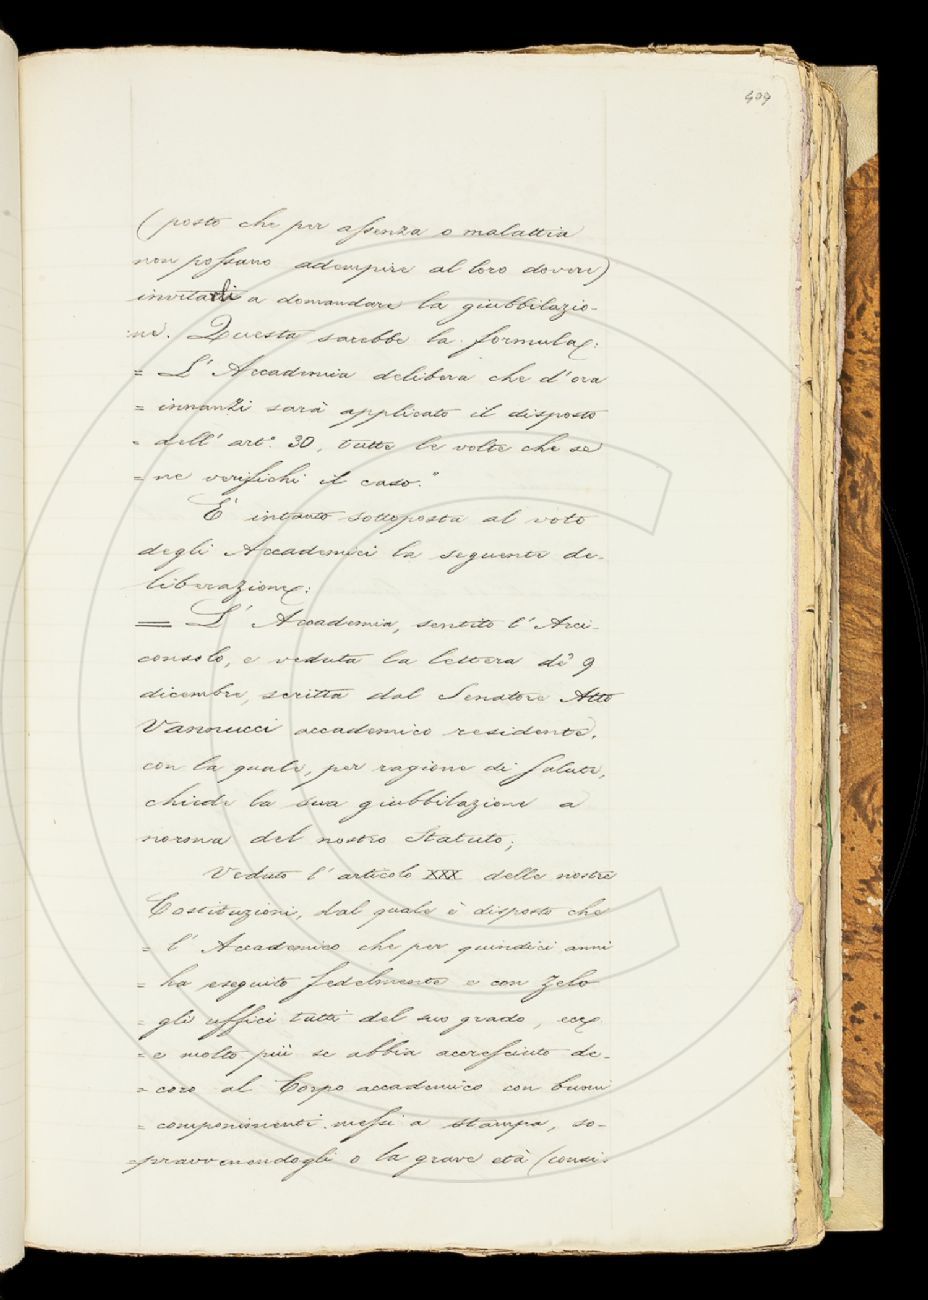 409
(posto che per assenza o malattia
non possano adempire al loro dovere)
invitarli a domandare la giubbilazio-
ne. Questa sarebbe la formula:
= L'Accademia delibera che d'ora
= innanzi sarà applicato il disposto
= dell'art.° 30, tutte le volte che se
= ne verifichi il caso."
E' intanto sottoposta al voto
degli Accademici la seguente de-
liberazione:
= L'Accademia, sentito l'Arci-
consolo, e veduta la lettera de' 9
dicembre, scritta dal Senatore Atto
Vannucci accademico residente,
con la quale, per ragione di salute,
chiede la sua giubbilazione a
norma del nostro Statuto;
Veduto l'articolo XXX delle nostre
Costituzioni, dal quale è disposto che
= l'Accademico che per quindici anni
= ha eseguito fedelmente e con zelo
= gli uffici tutti del suo grado, ecc
= e molto più se abbia accresciuto de-
= coro al Corpo accademico con buoni
= componimenti messi a stampa, so-
= pravvenendogli o la grave età (consi-